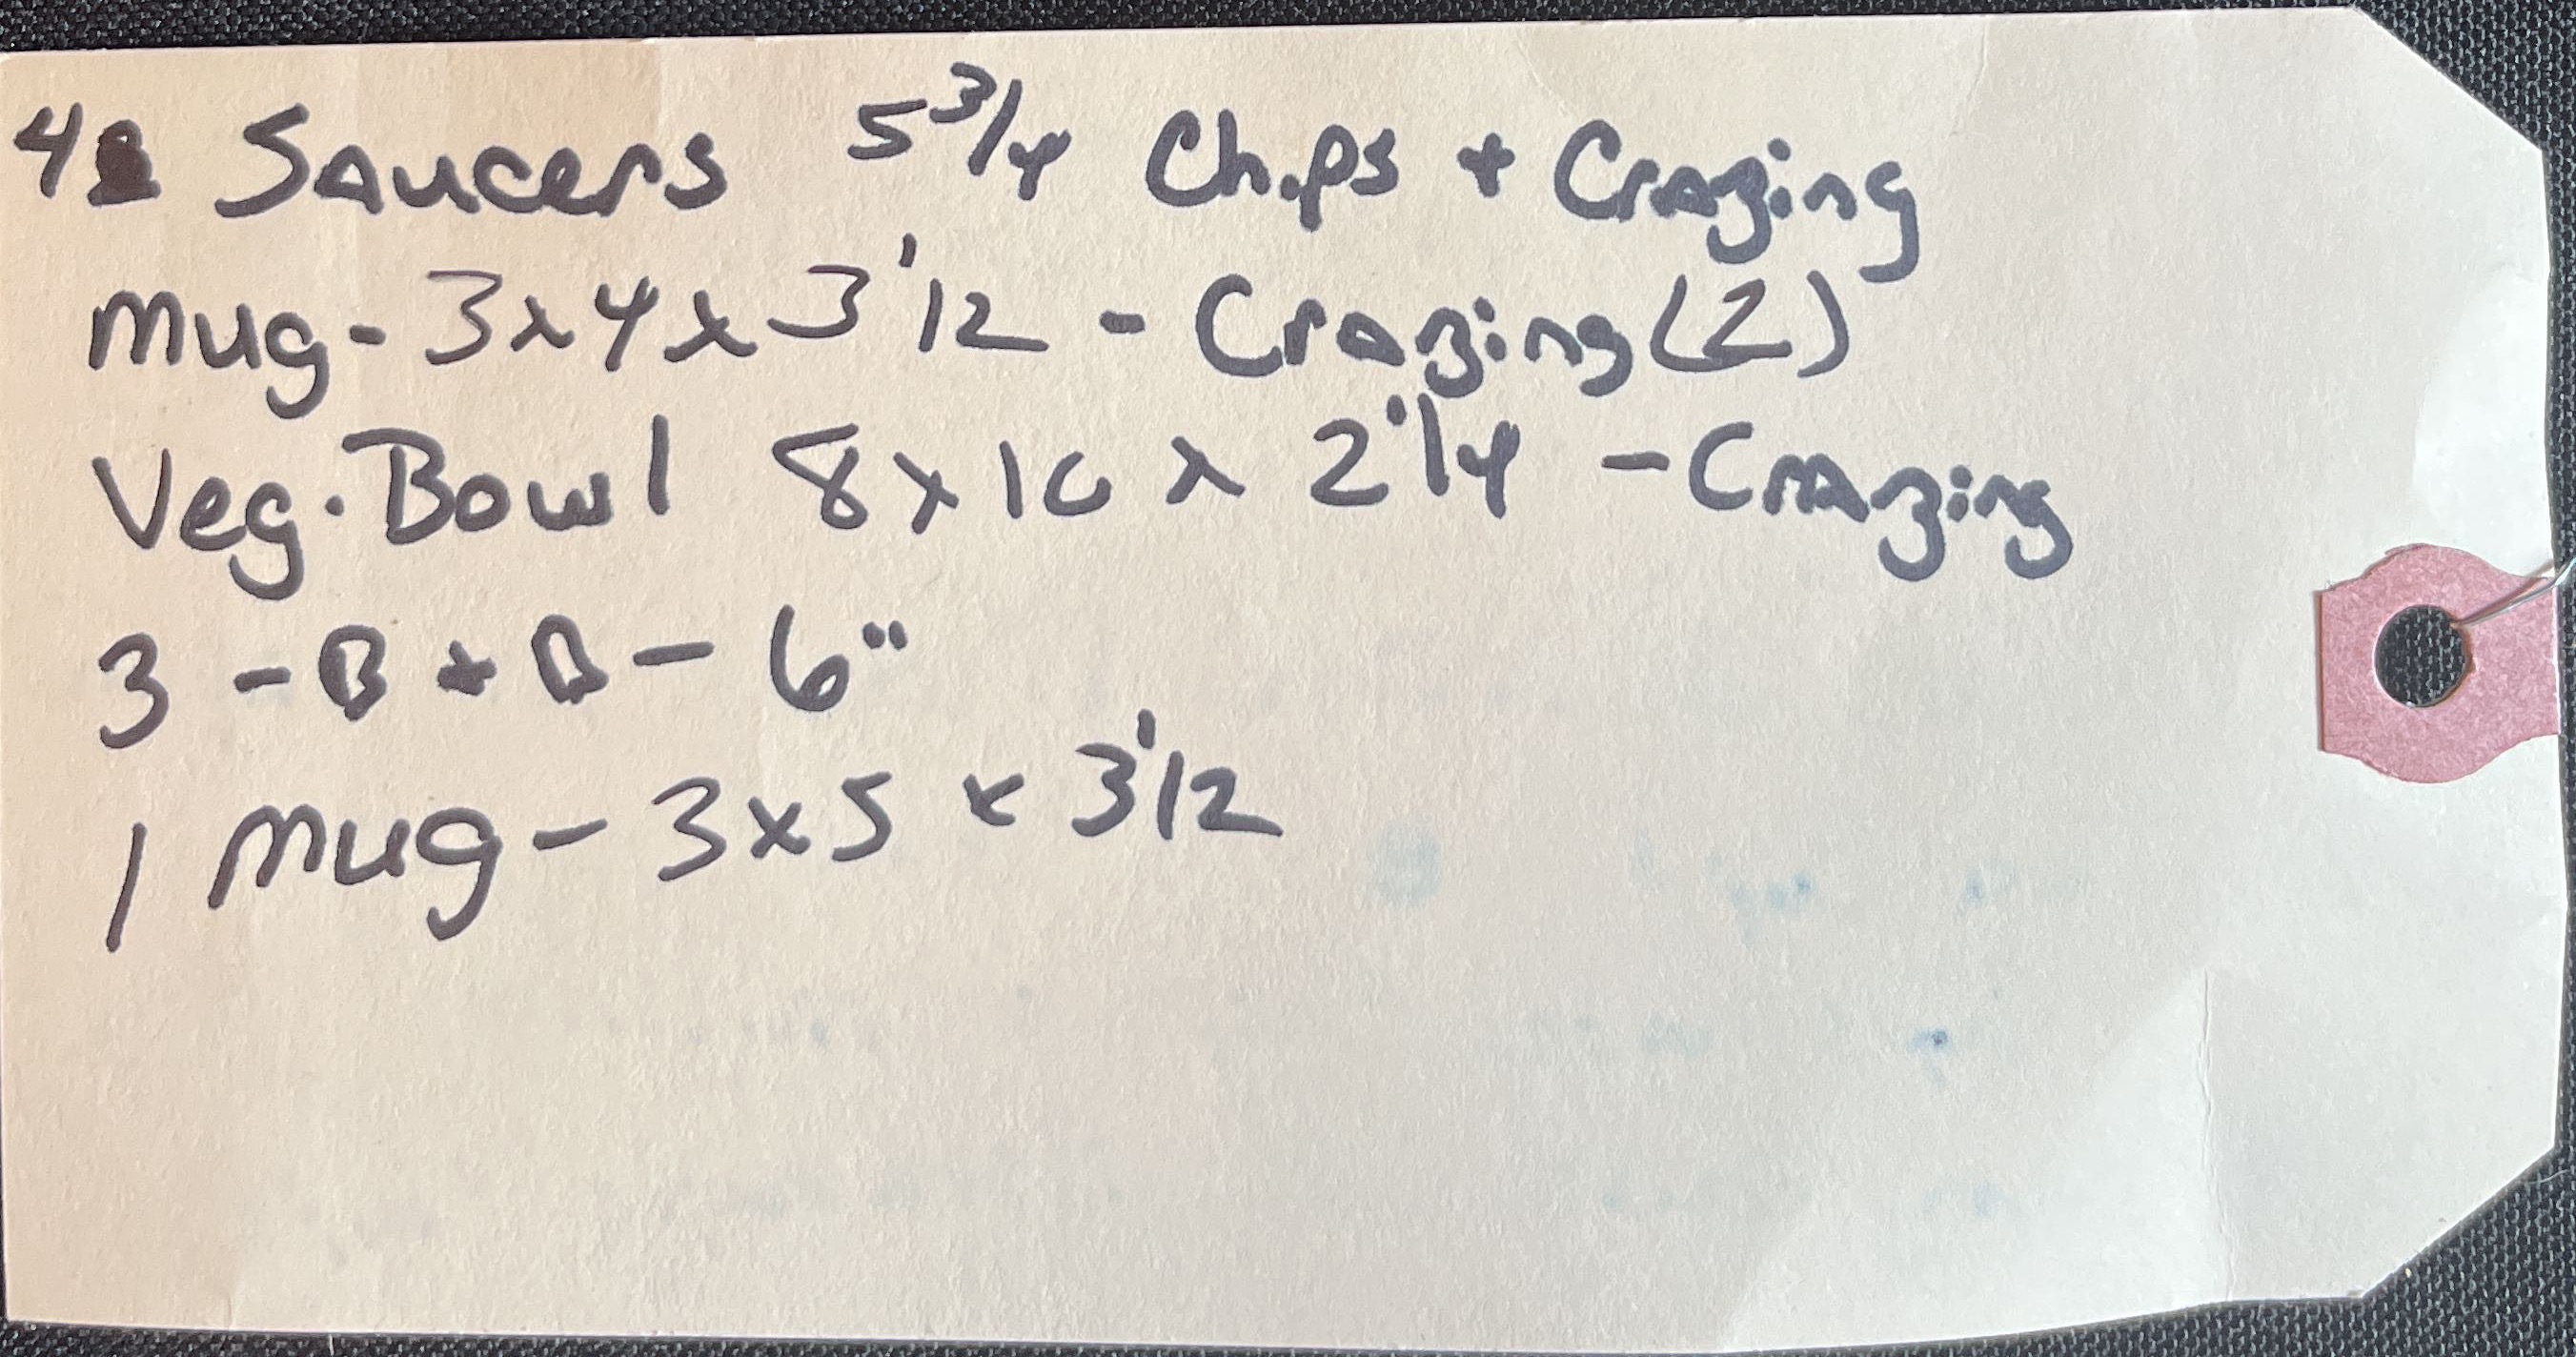 4 Saucers 5 3/4 Chips + Crazing
Mug - 3x4x3 1/2 - Crazing (2)
Veg. Bowl 8x10x2 1/4 - Crazing
3 - B + B - 6"
1 Mug - 3x5x3 1/2